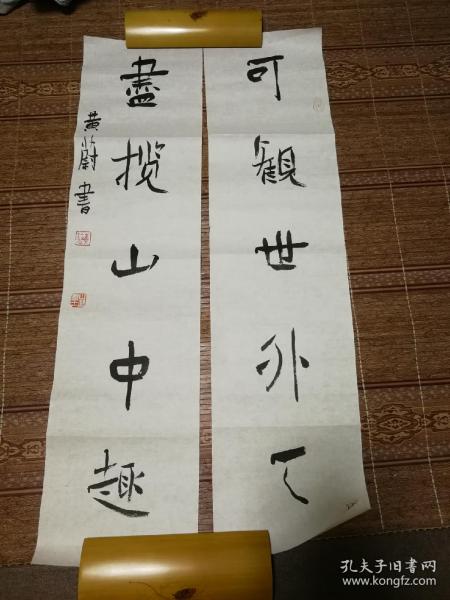 可觀世外天
盡揽山中趣
黄蔚書
孔夫子旧书网
www.kongfz.com